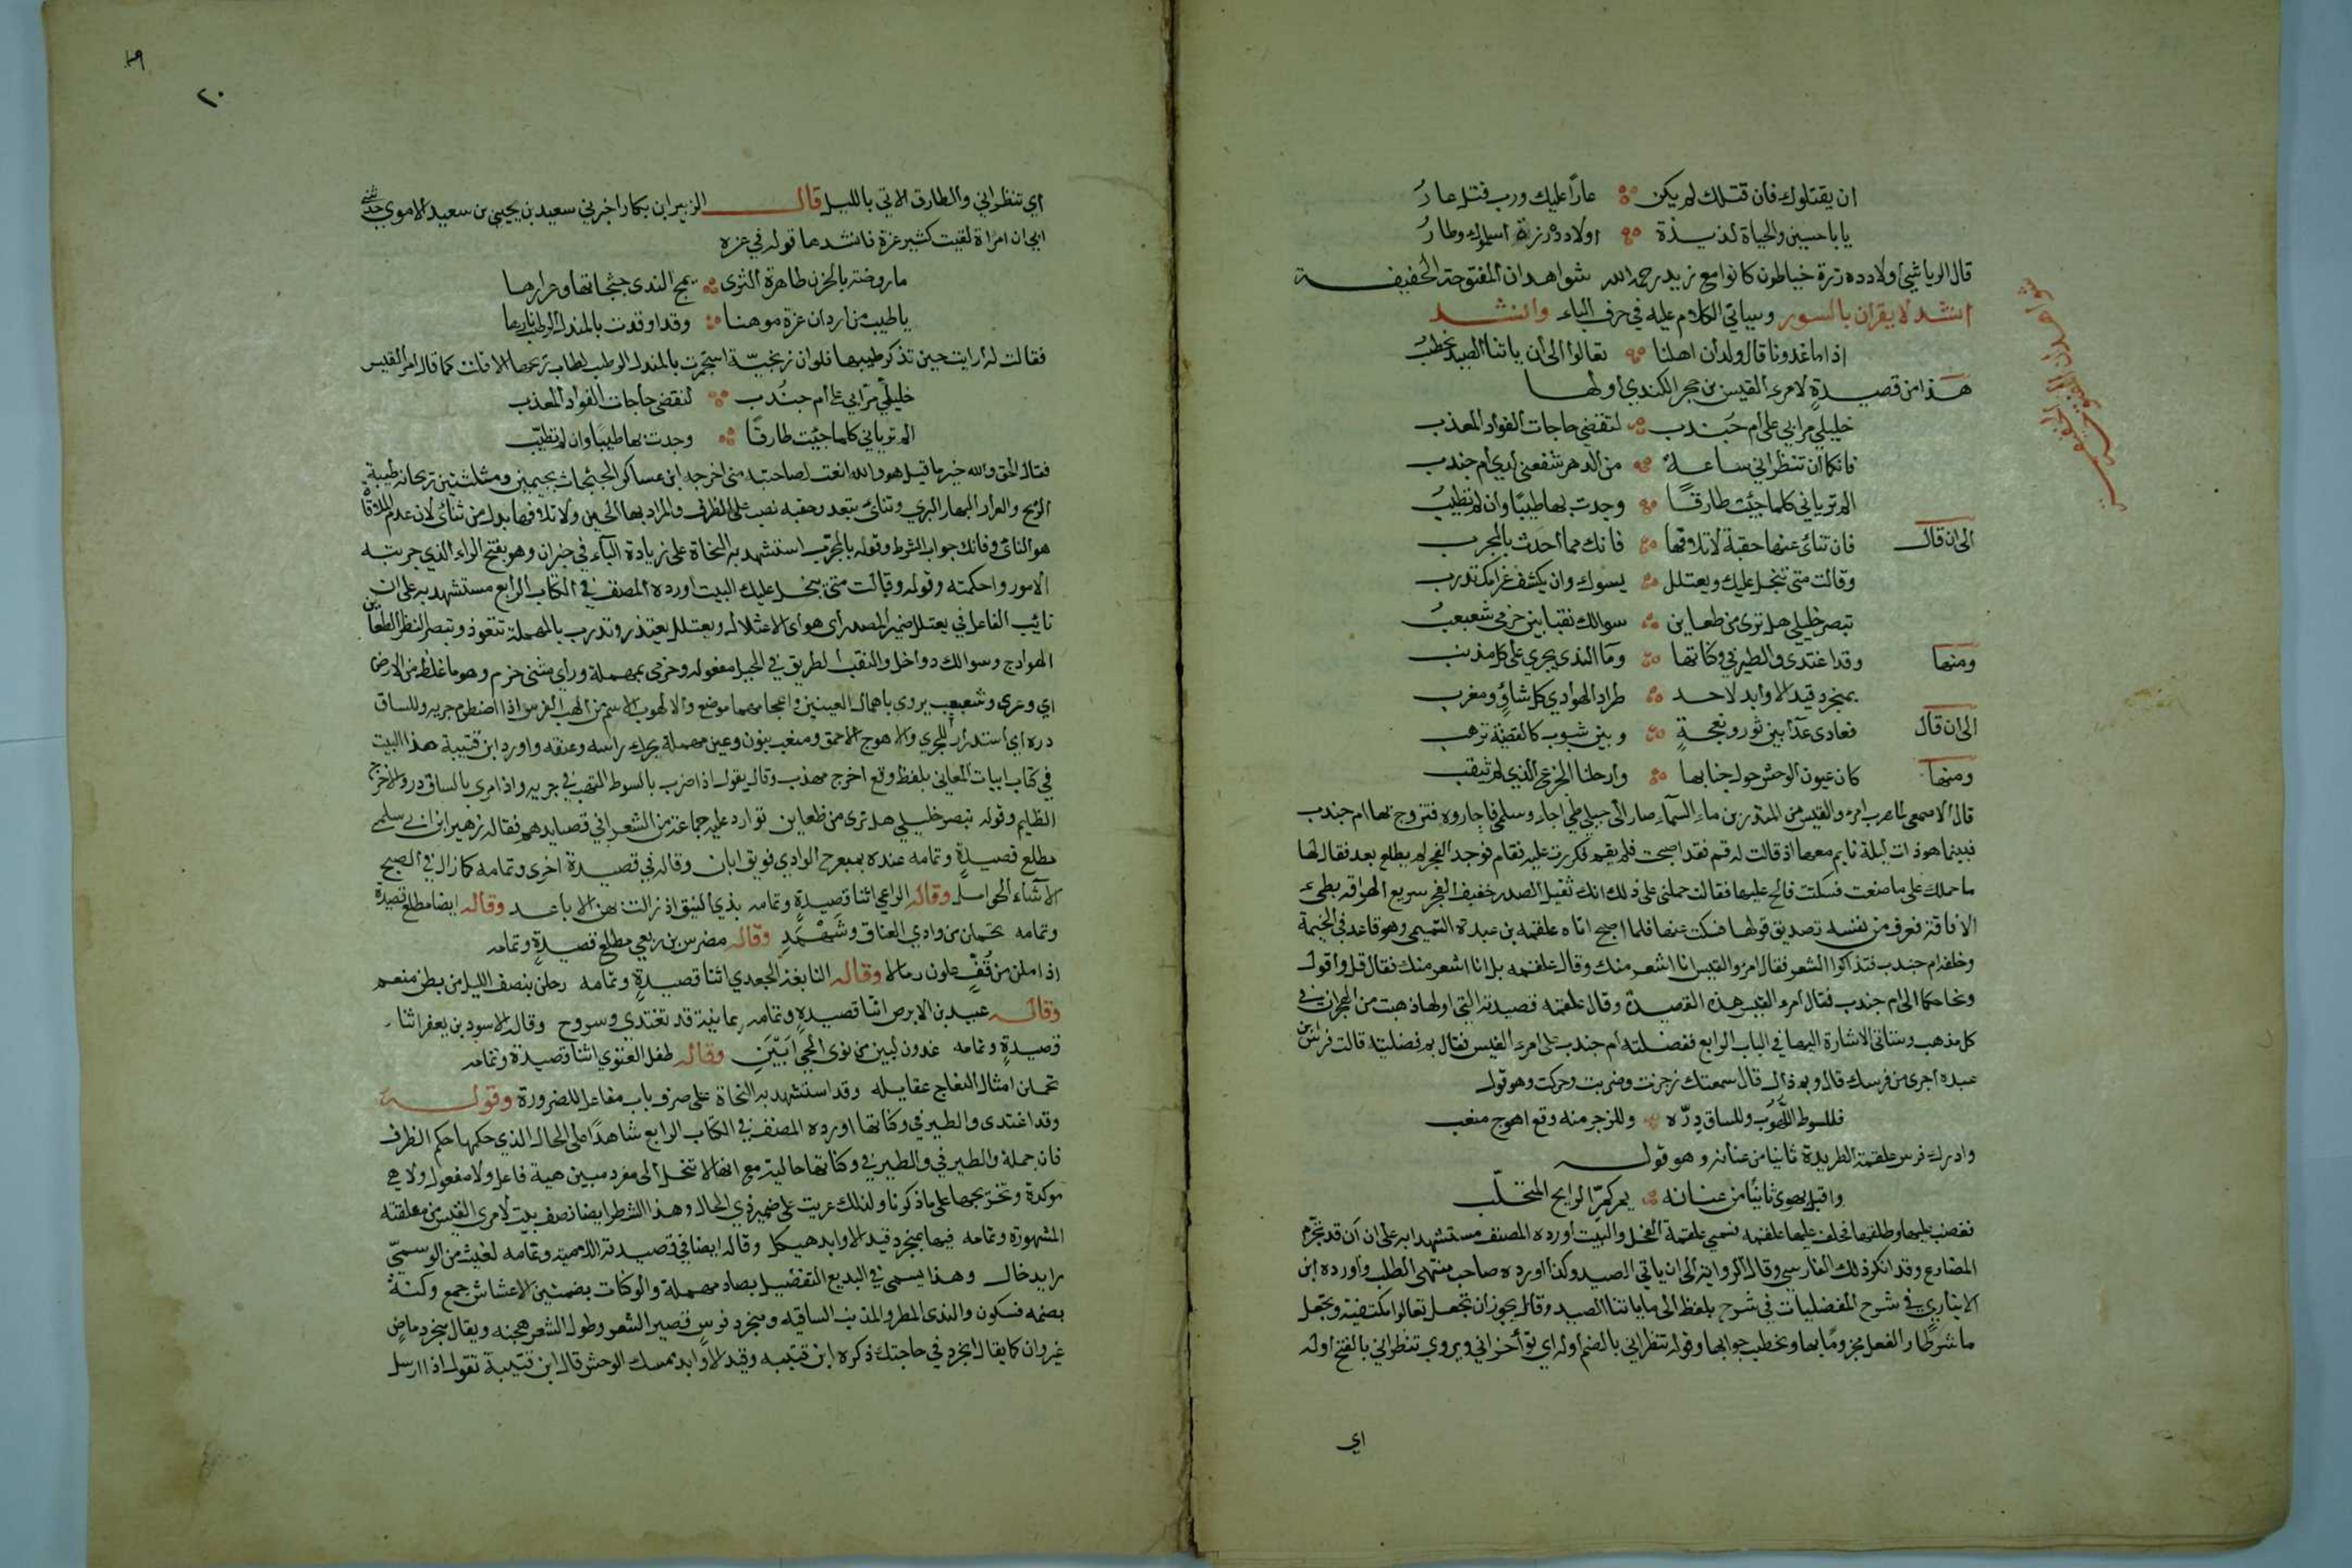 ان يقتلوك فان قتلك لم يكن عارًا عليك ورب قتل عارُ
يا با حسين والحياة لذيذة اولاد درزة اسلموك وطارُ
قال الرياشي اولاد درزة خياطون كانوا مع زيد رحمه الله شواهد ان المفتوحة الخفيفة
انشد لا يقران بالسور وسياتي الكلام عليه في حرف الباء وانشد
اذا ما غدونا قال ولدان اهلنا تعالوا الى ان ياتنا الصيد نحطب
هذا من قصيدة لامرء القيس بن حجر الكندي اولها
خليلي مرا بي على ام جندب لنقضي حاجات الفواد المعذب
فانكما ان تنظراني ساعة من الدهر تنفعني لدي ام جندب
الم ترياني كلما جئت طارقًا وجدت بها طيبًا وان لم تطيب
الى ان قال فان تنائ عنها حقبة لا تلاقها فانك مما احدث بالمجرب
وقالت متى تبخل عليك ويعتلل يسوك وان يكشف غرامك تدرب
تبصر خليلي هل ترى من ظعاين سوالك نقبا بين حزمي شعبعب
ومنها وقد اغتدى والطير في وكناتها وما الندى يجري على كل مذنب
بمنجرد قيد الاوابد لاحه طراد الهوادي كل شاوٍ ومغرب
الى ان قال فعادى عدا بين ثور ونعجةٍ وبين شبوب كالقضيمة قرهب
ومنها كان عيون الوحش حول خبايها وارحلنا الجزع الذي لم يثقب
قال الاصمعي لما هرب امرء القيس من المنذر بن ماء السماء صار الى جبلي طي اجاء وسلمى فاجاروه فتزوج بها ام جندب
فبينما هو ذات ليلة نايم معها اذ قالت له قم فقد اصبحت فلم يقم فكررت عليه فقام فوجد الفجر لم يطلع بعد فقال لها
ما حملك على ما صنعت فسكتت فالح عليها فقالت حملني على ذلك انك ثقيل الصدر خفيف العجز سريع الهراقه بطيء
الافاقة فعرف من نفسه تصديق قولها فسكت عنها فلما اصبح اتاه علقمه بن عبدة التميمي وهو قاعد في الخيمة
وخلفه ام جندب فتذاكروا الشعر فقال امرؤ القيس انا اشعر منك وقال علقمه بل انا اشعر منك فقال قل واقول
وتحاكما الى ام جندب فقال امرء القيس هذه القصيدة وقال علقمه قصيدته التي اولها ذهبت من الهجران في
كل مذهب وستاتي الاشارة اليها في الباب الرابع ففضلته ام جندب على امرء القيس فقال بم فضلتيه قالت فرس ابن
عبده اجرى من فرسك قال وبم ذاك قال سمعتك زجرت وضربت وحركت وهو قولك
فللسوط الهوب وللساق درّه وللزجر منه وقع اهوج منعب
وادرك فرس علقمة الطريدة ثانيا من عنانه وهو قوله
واقبل يهوي ثانيًا من عنانه يمر كمرّ الرايح المتحلّب
فغضب عليها وطلقها فخلف عليها علقمه فسمي علقمة الفحل والبيت اورده المصنف مستشهدا به على ان ان قد تجزم
المضارع وقد انكر ذلك الفارسي وقال الرواية الى ان ياتي الصيد وكذا اورده صاحب منتهى الطلب واورده ابن
الانباري في شرح المفضليات في شرح بلفظ الى ما ياتنا الصيد وقال يجوز ان تجعل تعالوا مكتفية وتجعل
ما شرطًا والفعل مجزومًا بها ونحطب جوابها وقوله تنظراني بالضم اوله اي تؤاخراني ويروي تنظراني بالفتح اوله
اي
شواهد ان المفتوحة الخفيفة
٢٠
اي تنظراني والطارق الاتي بالليل قال الزبير ابن بكار اخبرني سعيد بن يحيى بن سعيد الاموي حدثني
ابي ان امراة لقيت كثير عزة فانشدها قوله في عزه
ما روضة بالحزن طاهرة الثرى يمج الندى جثجاثها وعرارها
باطيب من اردان عزة موهنا وقد اوقدت بالمندل الرطب نارها
فقالت له ارايت حين تذكر طيبها فلو ان زنجيّة استجمرت بالمندل الرطب لطاب ريحها الا قلت كما قال امرء القيس
خليلي مرّا بي على ام جندب لنقضي حاجات الفواد المعذب
الم ترياني كلما جئت طارقًا وجدت بها طيبًا وان لم تطيّب
فقال الحق والله خير ما قيل هو والله انعت لصاحبته مني اخرجه ابن عساكر الجثجاث بجيمين ومثلثتين ريحانه طيبة
الريح والعرار البهار البري وتنائ تبعد وحقبه نصب على الظرف والمراد بها الحين ولا تلاقها بدل من تنائ لان عدم الملاقاة
هو النائ وفانك جواب الشرط وقوله بالمجرّب استشهد به النحاة على زيادة الباء في خبر ان وهو بفتح الراء الذي جربته
الامور واحكمته وقوله وقالت متى يبخل عليك البيت اورده المصنف في الكتاب الرابع مستشهد به على ان
نائب الفاعل في يعتلل ضمير المصدر اي هو اي الاعتلال ويعتلل يعتذر وتدرب بالمهملة تتعوذ وتبصر انظر الظعاين
الهوادج وسوالك دواخل والنقب الطريق في الجبل مفعوله وحزمى بمهملة وراي مثنى حزم وهو ما غلظ من الارض
اي وعرى وشعبعب يروى باهمال العينين واعجامهما موضع والالهوب الاسم من الهب الفرس اذا اضطرم جريه وللساق
دره اي استدرار للجري والاهوج الاحمق ومنعب بنون وعين مهملة يحرك راسه وعنقه واورد ابن قتيبة هذا البيت
في كتاب ابيات المعاني بلفظ وقع اخرج مهذب وقال يقول اذا ضرب بالسوط التهب في جريه واذا مرى بالساق در والاخرج
الظليم وقوله تبصر خليلي هل ترى من ظعاين توارد عليه جماعة من الشعرا في قصايدهم فقال زهير ابن ابي سلمى
مطلع قصيدةٍ وتمامه عنده بمنعرج الوادي فويق ابان وقال في قصيدة اخرى وتمامه كما زال في الصبح
الاشاء الحوامل وقال الراعي اثنا قصيدةٍ وتمامه بذي النبق اذ زالت بهن الاباعد وقال ايضا مطلع قصيدة
وتمامه تحملن من وادي العناق وثهمد وقال مضرس بن ربعي مطلع قصيدة وتمامه
اذا ملن من قُفٍّ علون رمالا وقال النابغة الجعدي اثنا قصيدةٍ وتمامه رحلن بنصف الليل من بطن منعم
وقال عبيد بن الابرص اثنا قصيدةٍ وتمامه يمانية قد تغتدي وتروح وقال الاسود بن يعفر اثناء
قصيدةٍ وتمامه غدون لبين من نوى الحي ابيَن وقال طفل الغنوي اثنا قصيدة وتمامه
تحملن امثال النعاج عقايله وقد استشهد به النحاة على صرف باب مفاعل للضرورة وقوله
وقد اغتدى والطير في وكناتها اورده المصنف في الكتاب الرابع شاهدًا على الحال الذي حكمها حكم الظرف
فان جملة والطير في والطير في وكناتها حالية مع انها لا تنحل الى مفرد مبين هية فاعل ولا مفعول ولا هي
موكدة وتخريجها على ما ذكرنا ولذلك عريت على ضمير ذي الحال وهذا الشطر ايضا نصف بيت لامرى القيس من معلقته
المشهورة وتمامه فيها بمنجرد قيد الاوابد هيكل وقال ايضا في قصيدته اللامية وتمامه لغيث من الوسميّ
رايد خال وهذا يسمى في البديع التفصيل بصاد مهملة والوكنات بضمتين الاعشاش جمع وكنة
بضمه فسكون والندى المطر والمذنب الساقيه ومنجرد فرس قصير الشعر وطول الشعر هجنه ويقال منجرد ماضٍ
غير وان كما يقال انجرد في حاجتك ذكره ابن قتيبه وقيد الاوابد يمسك الوحش قال ابن قتيبة تقول اذا ارسل